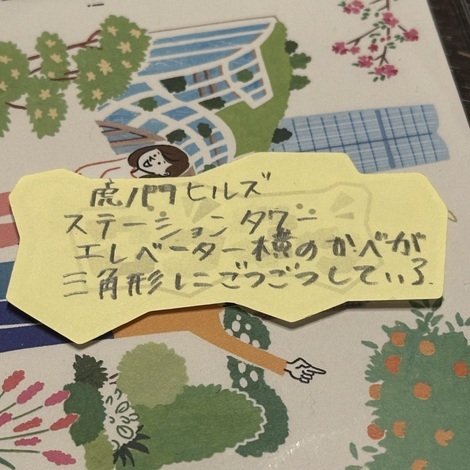 虎ノ門ヒルズ
ステーションタワー
エレベーター横のかべが
三角形にごつごつしている.